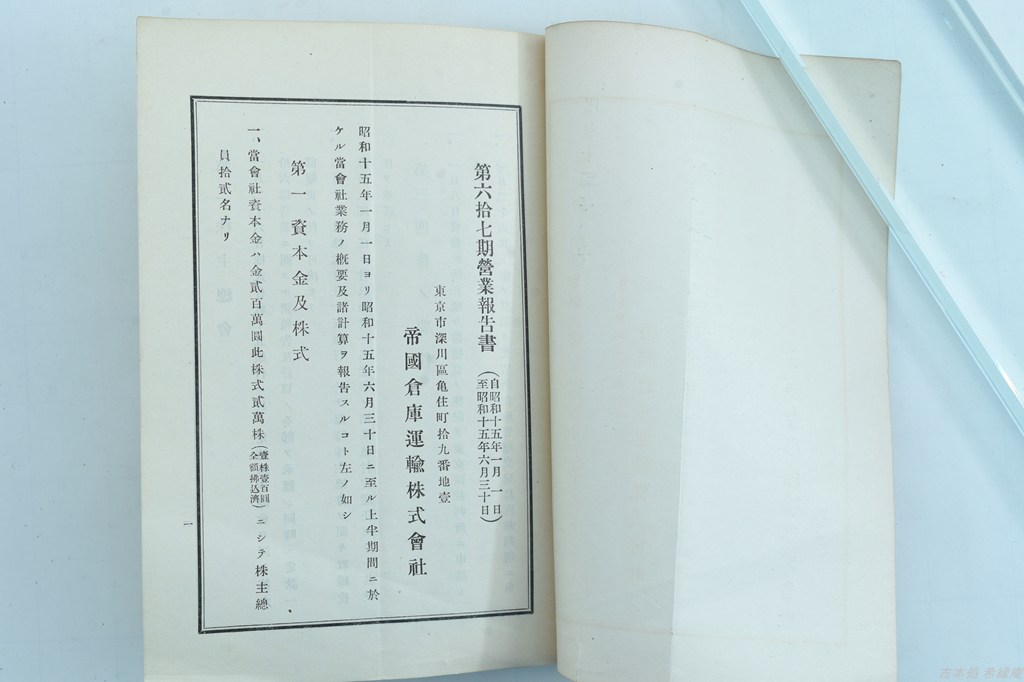 第六拾七期營業報告書（自昭和十五年一月一日至昭和十五年六月三十日）
東京市深川區亀住町拾九番地壹
帝國倉庫運輸株式會社
昭和十五年一月一日ヨリ昭和十五年六月三十日ニ至ル上半期間ニ於
ケル當會社業務ノ概要及諸計算ヲ報告スルコト左ノ如シ
第一 資本金及株式
一、當會社資本金ハ金貳百萬圓此株式貳萬株（壹株壹百圓全額拂込濟）ニシテ株主總
員拾貳名ナリ
一
古本処